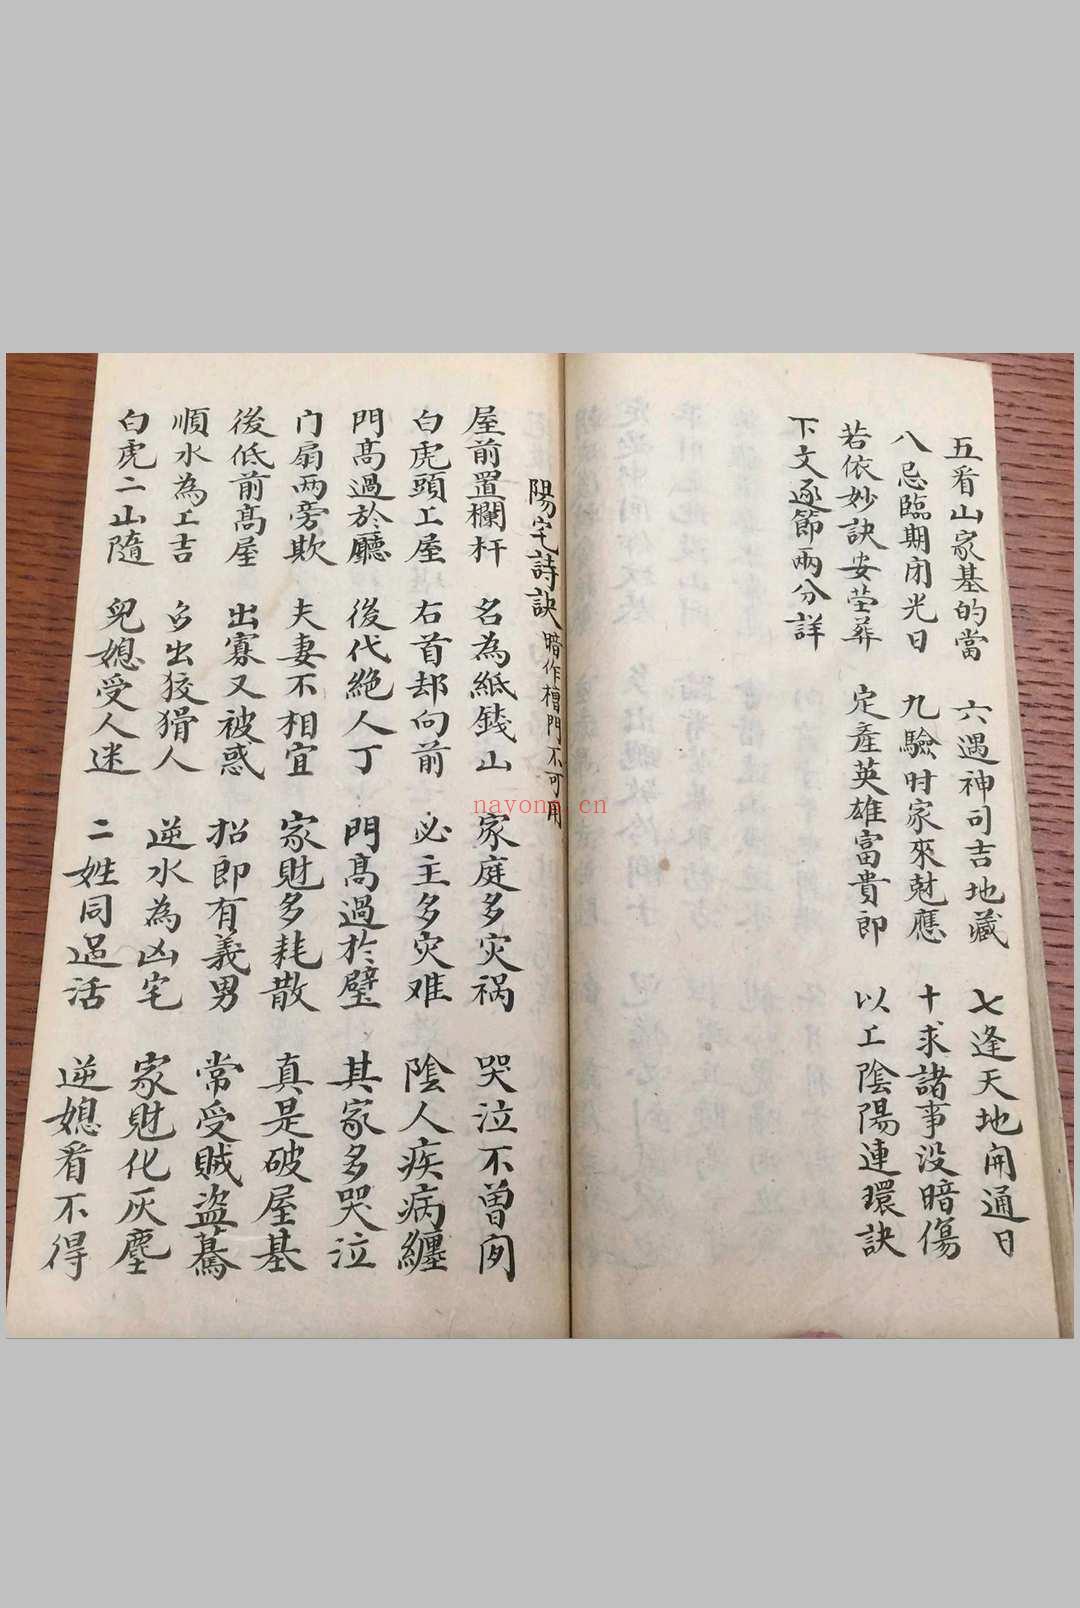 五看山家基的當　六遇神司吉地藏　七逢天地開通日
八忌臨期闭光日　九驗时家來尅應　十求諸事没暗傷
若依妙訣安茔葬　定產英雄富貴郎　以工陰陽連環訣
下文逐節兩分詳
陽宅詩訣　暗作檜門不可用
屋前置欄杆　名為紙錢山　家庭多灾祸　哭泣不曾闲
白虎頭工屋　右首却向前　必主多灾难　陰人疾病纏
門高過於廳　後代絶人丁　門高過於壁　其家多哭泣
门扇两旁欺　夫妻不相宜　家財多耗散　真是破屋基
後低前高屋　出寡又被惑　招郎有義男　常受贼盗驀
順水為工吉　多出狡猾人　逆水為凶宅　家財化灰塵
白虎二山隨　兒媳受人迷　二姓同過活　逆媳看不得
nayona.cn